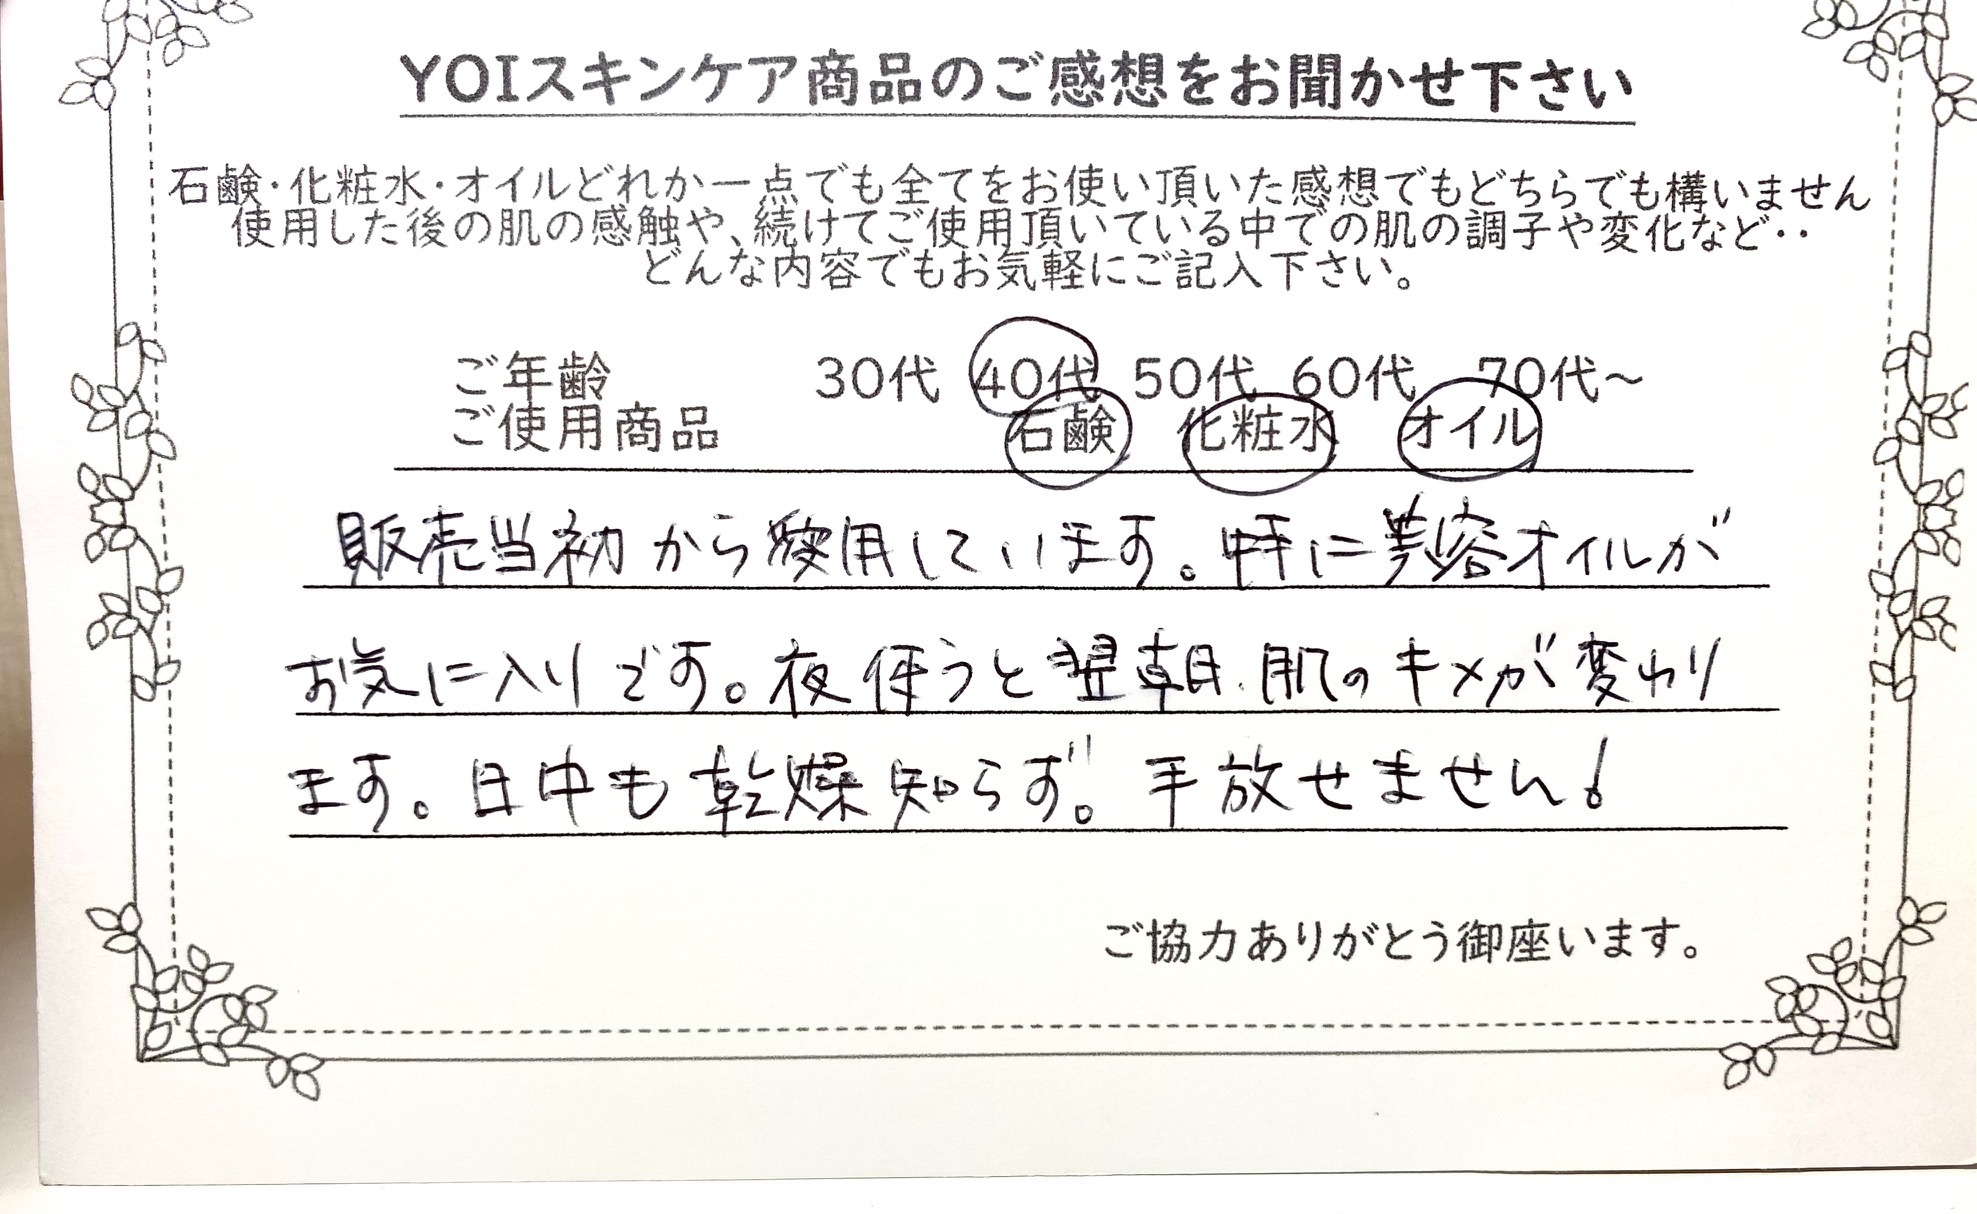 YOIスキンケア商品のご感想をお聞かせ下さい
石鹸・化粧水・オイルどれか一点でも全てをお使い頂いた感想でもどちらでも構いません
使用した後の肌の感触や、続けてご使用頂いている中での肌の調子や変化など・・
どんな内容でもお気軽にご記入下さい。
ご年齢 30代 40代 50代 60代 70代～
ご使用商品 石鹸 化粧水 オイル
販売当初から愛用しています。特に美容オイルが
お気に入りです。夜使うと翌朝、肌のキメが変わり
ます。日中も乾燥知らず。手放せません!
ご協力ありがとう御座います。